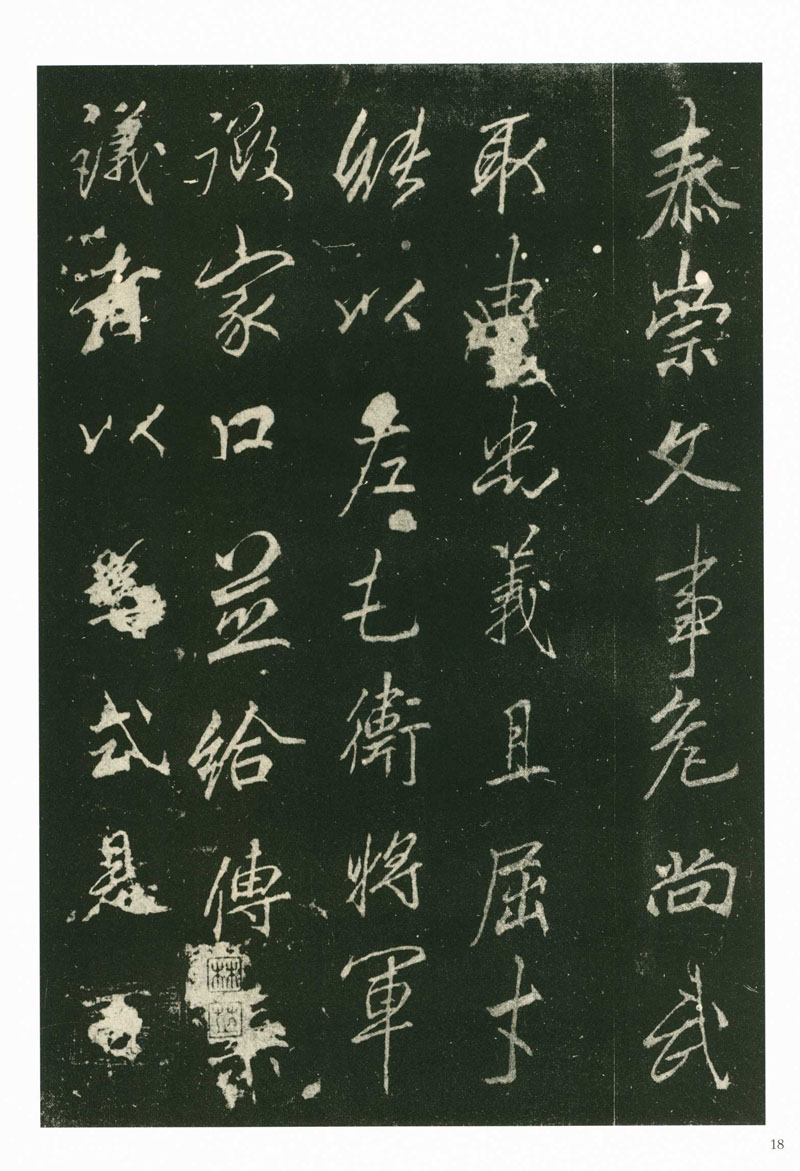 泰崇文事危尚武
取忠義且屈才
能以左屯衛將軍
徵家口並給傳乘
議者以式是百
18